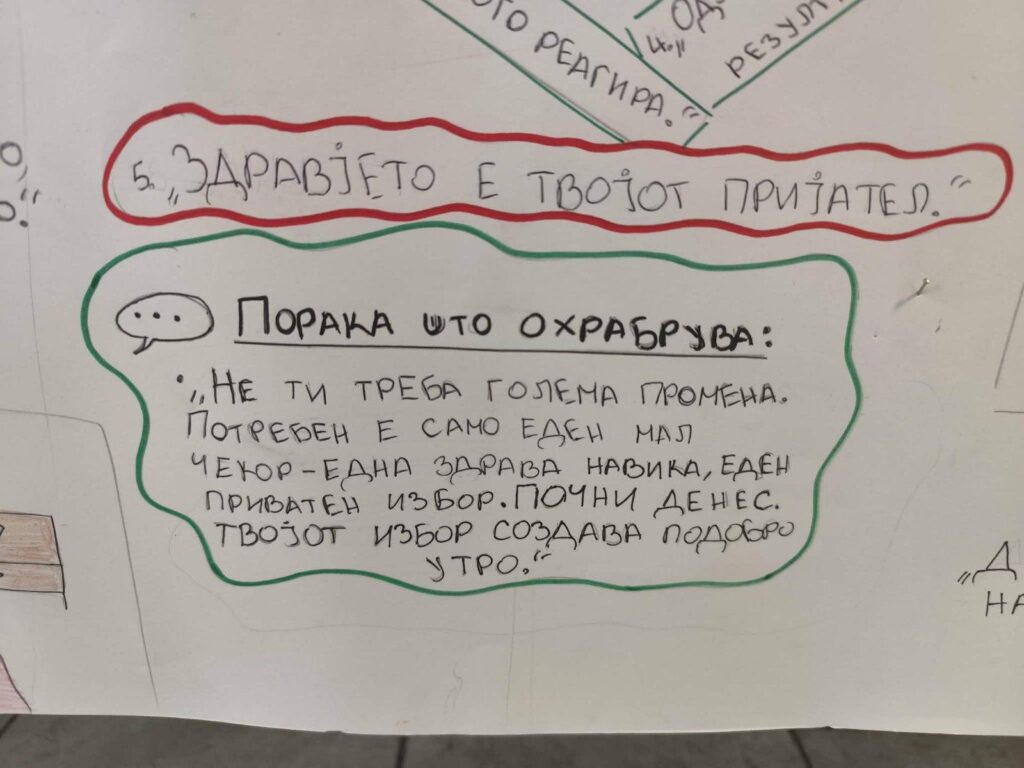 ГО РЕАГИРА."
4.
ОД
РЕЗУЛ
5. „ЗДРАВЈЕТО Е ТВОЈОТ ПРИЈАТЕЛ."
ПОРАКА ШТО ОХРАБРУВА:
• „НЕ ТИ ТРЕБА ГОЛЕМА ПРОМЕНА.
ПОТРЕБЕН Е САМО ЕДЕН МАЛ
ЧЕКОР-ЕДНА ЗДРАВА НАВИКА, ЕДЕН
ПРИВАТЕН ИЗБОР. ПОЧНИ ДЕНЕС.
ТВОЈОТ ИЗБОР СОЗДАВА ПОДОБРО
УТРО."
„Д
НА